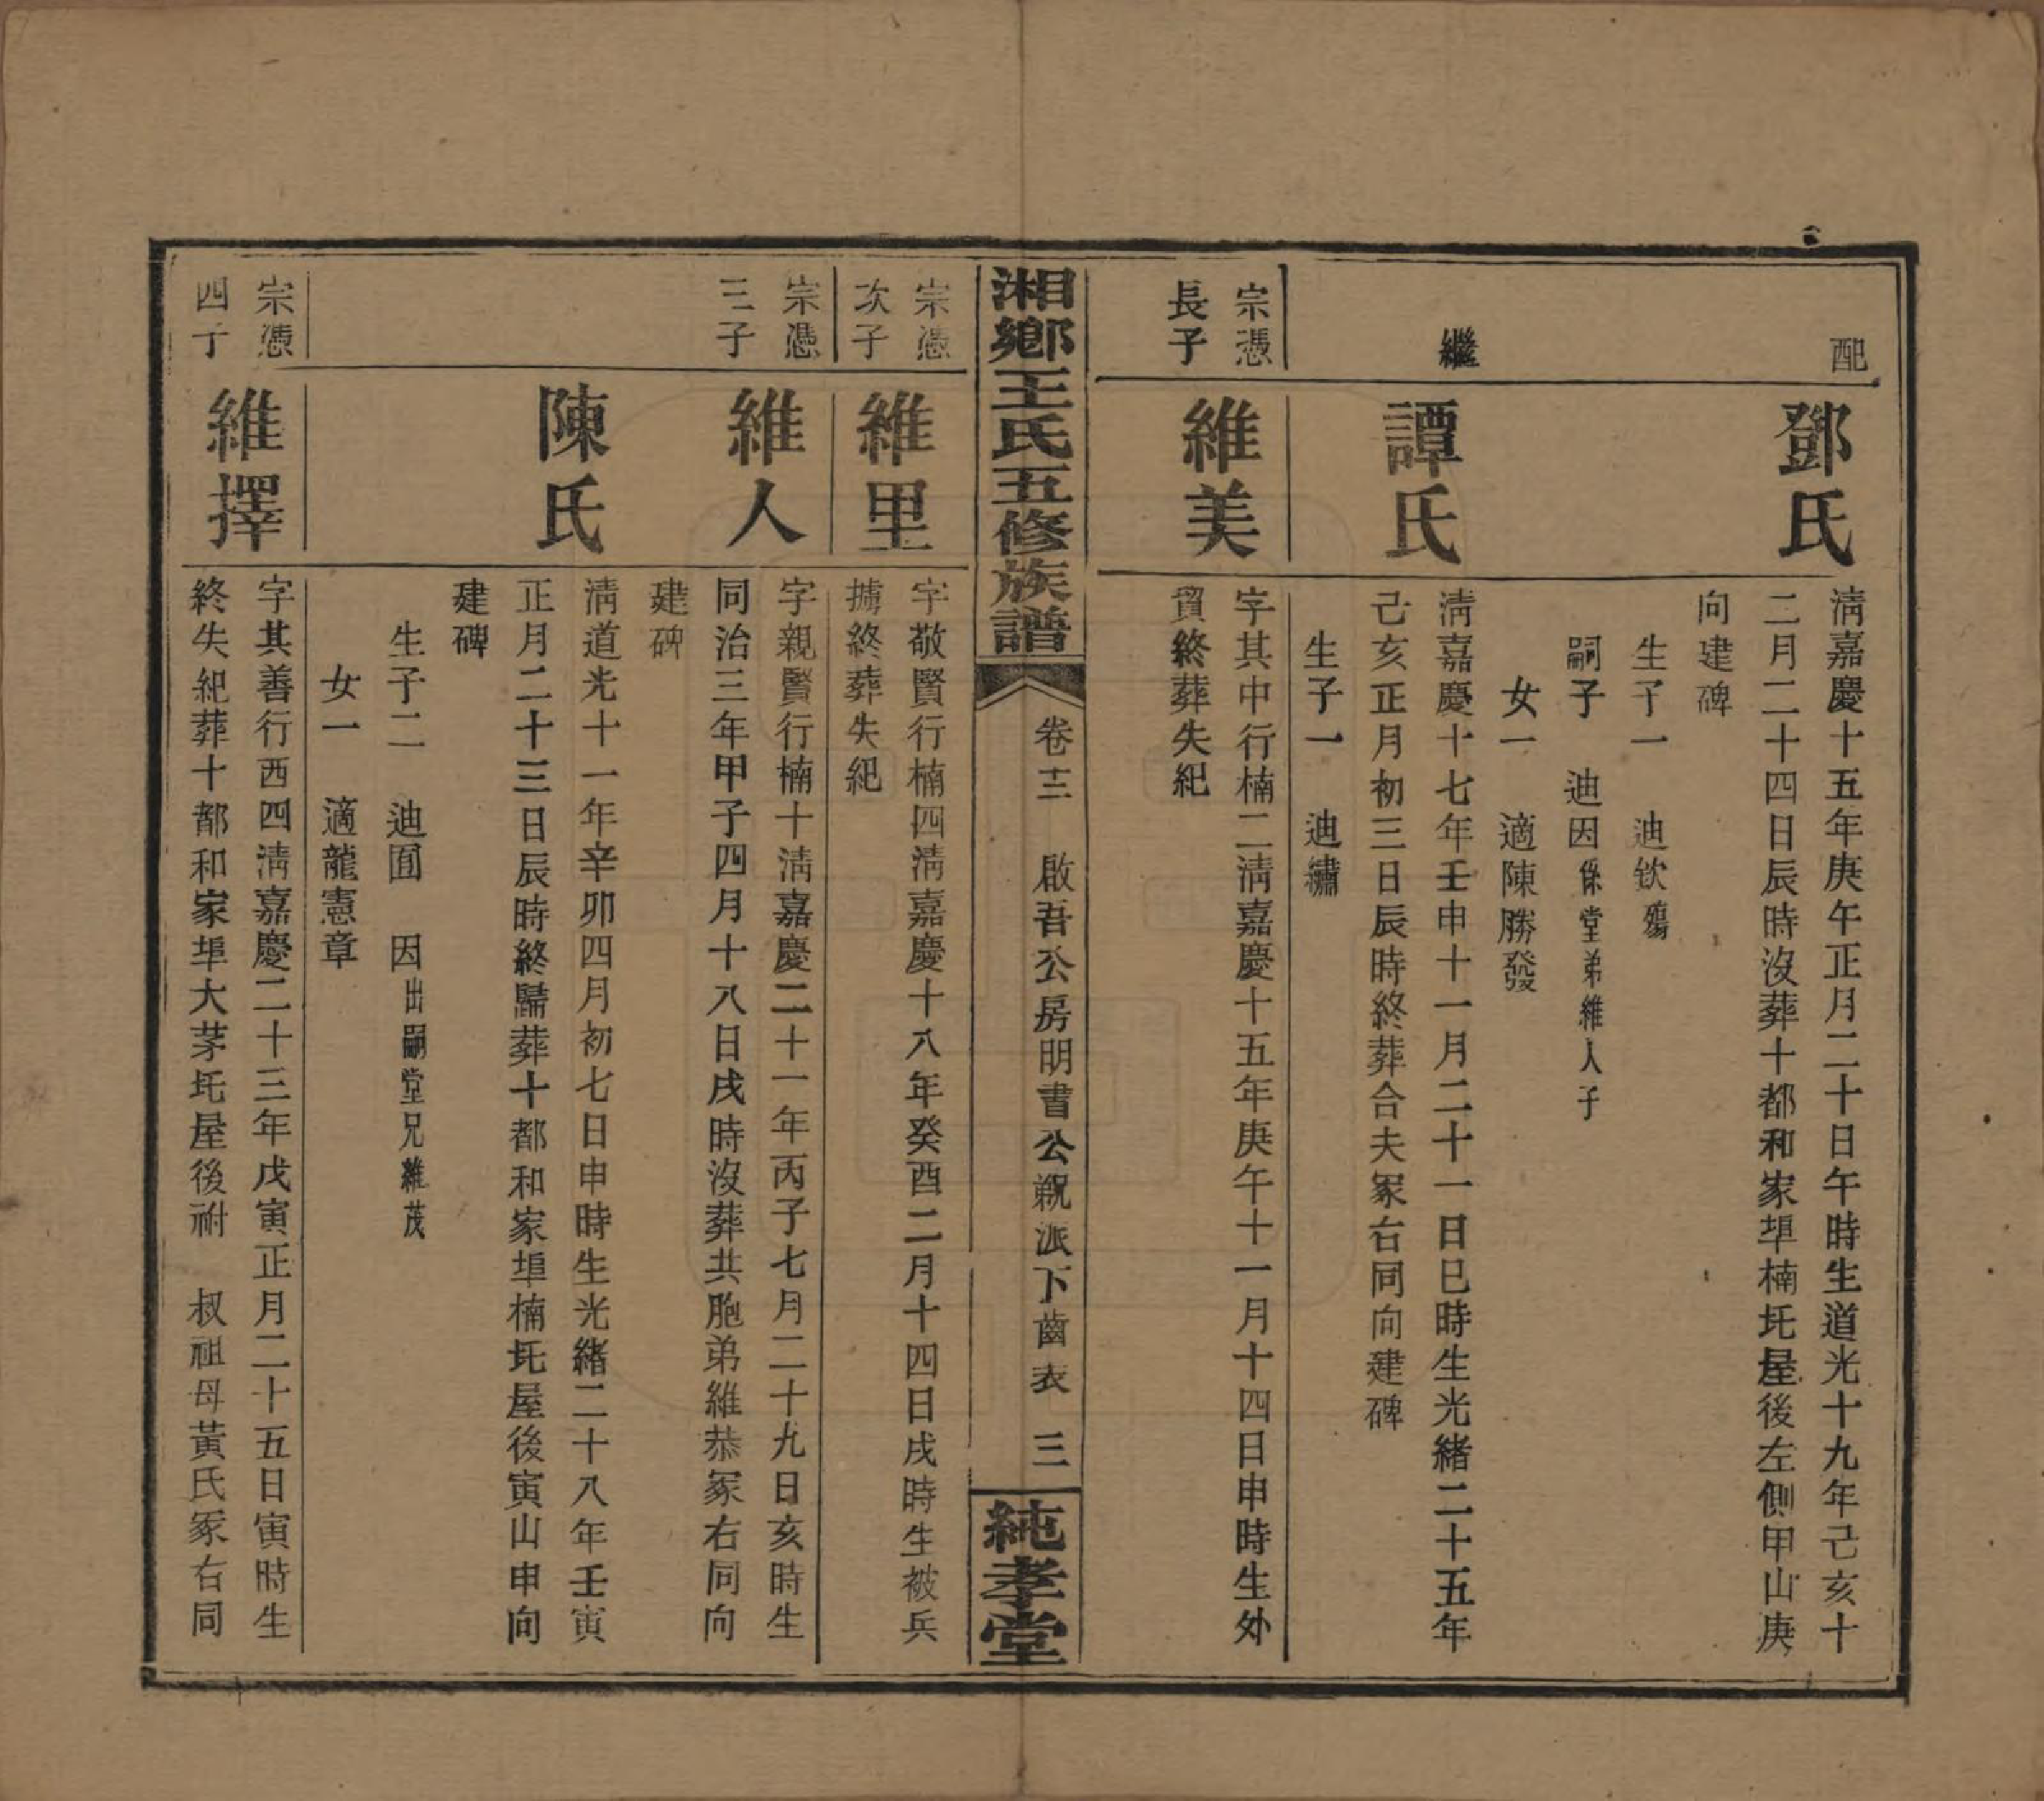 配
鄧氏
淸嘉慶十五年庚午正月二十日午時生道光十九年己亥十
二月二十四日辰時沒葬十都和家埠楠圫屋後左側甲山庚
向建碑
生子一　迪欽殤
嗣子　迪因係堂弟維人子
女一　適陳勝發
繼
譚氏
淸嘉慶十七年壬申十一月二十一日巳時生光緒二十五年
己亥正月初三日辰時終葬合夫冢右同向建碑
生子一　迪繡
宗憑
長子
維美
字其中行楠二淸嘉慶十五年庚午十一月十四日申時生外
貿終葬失紀
湘鄉王氏五修族譜
卷十三　啟吾公房明書公覲派下齒表　三
純孝堂
宗憑
次子
維里
字敬賢行楠四淸嘉慶十八年癸酉二月十四日戌時生被兵
擄終葬失紀
宗憑
三子
維人
字親賢行楠十淸嘉慶二十一年丙子七月二十九日亥時生
同治三年甲子四月十八日戌時沒葬共胞弟維恭冢右同向
建碑
陳氏
淸道光十一年辛卯四月初七日申時生光緒二十八年壬寅
正月二十三日辰時終歸葬十都和家埠楠圫屋後寅山申向
建碑
生子二　迪囿　因出嗣堂兄維茂
女一　適龍憲章
宗憑
四子
維擇
字其善行西四淸嘉慶二十三年戊寅正月二十五日寅時生
終失紀葬十都和家埠大茅圫屋後祔　叔祖母黃氏冢右同